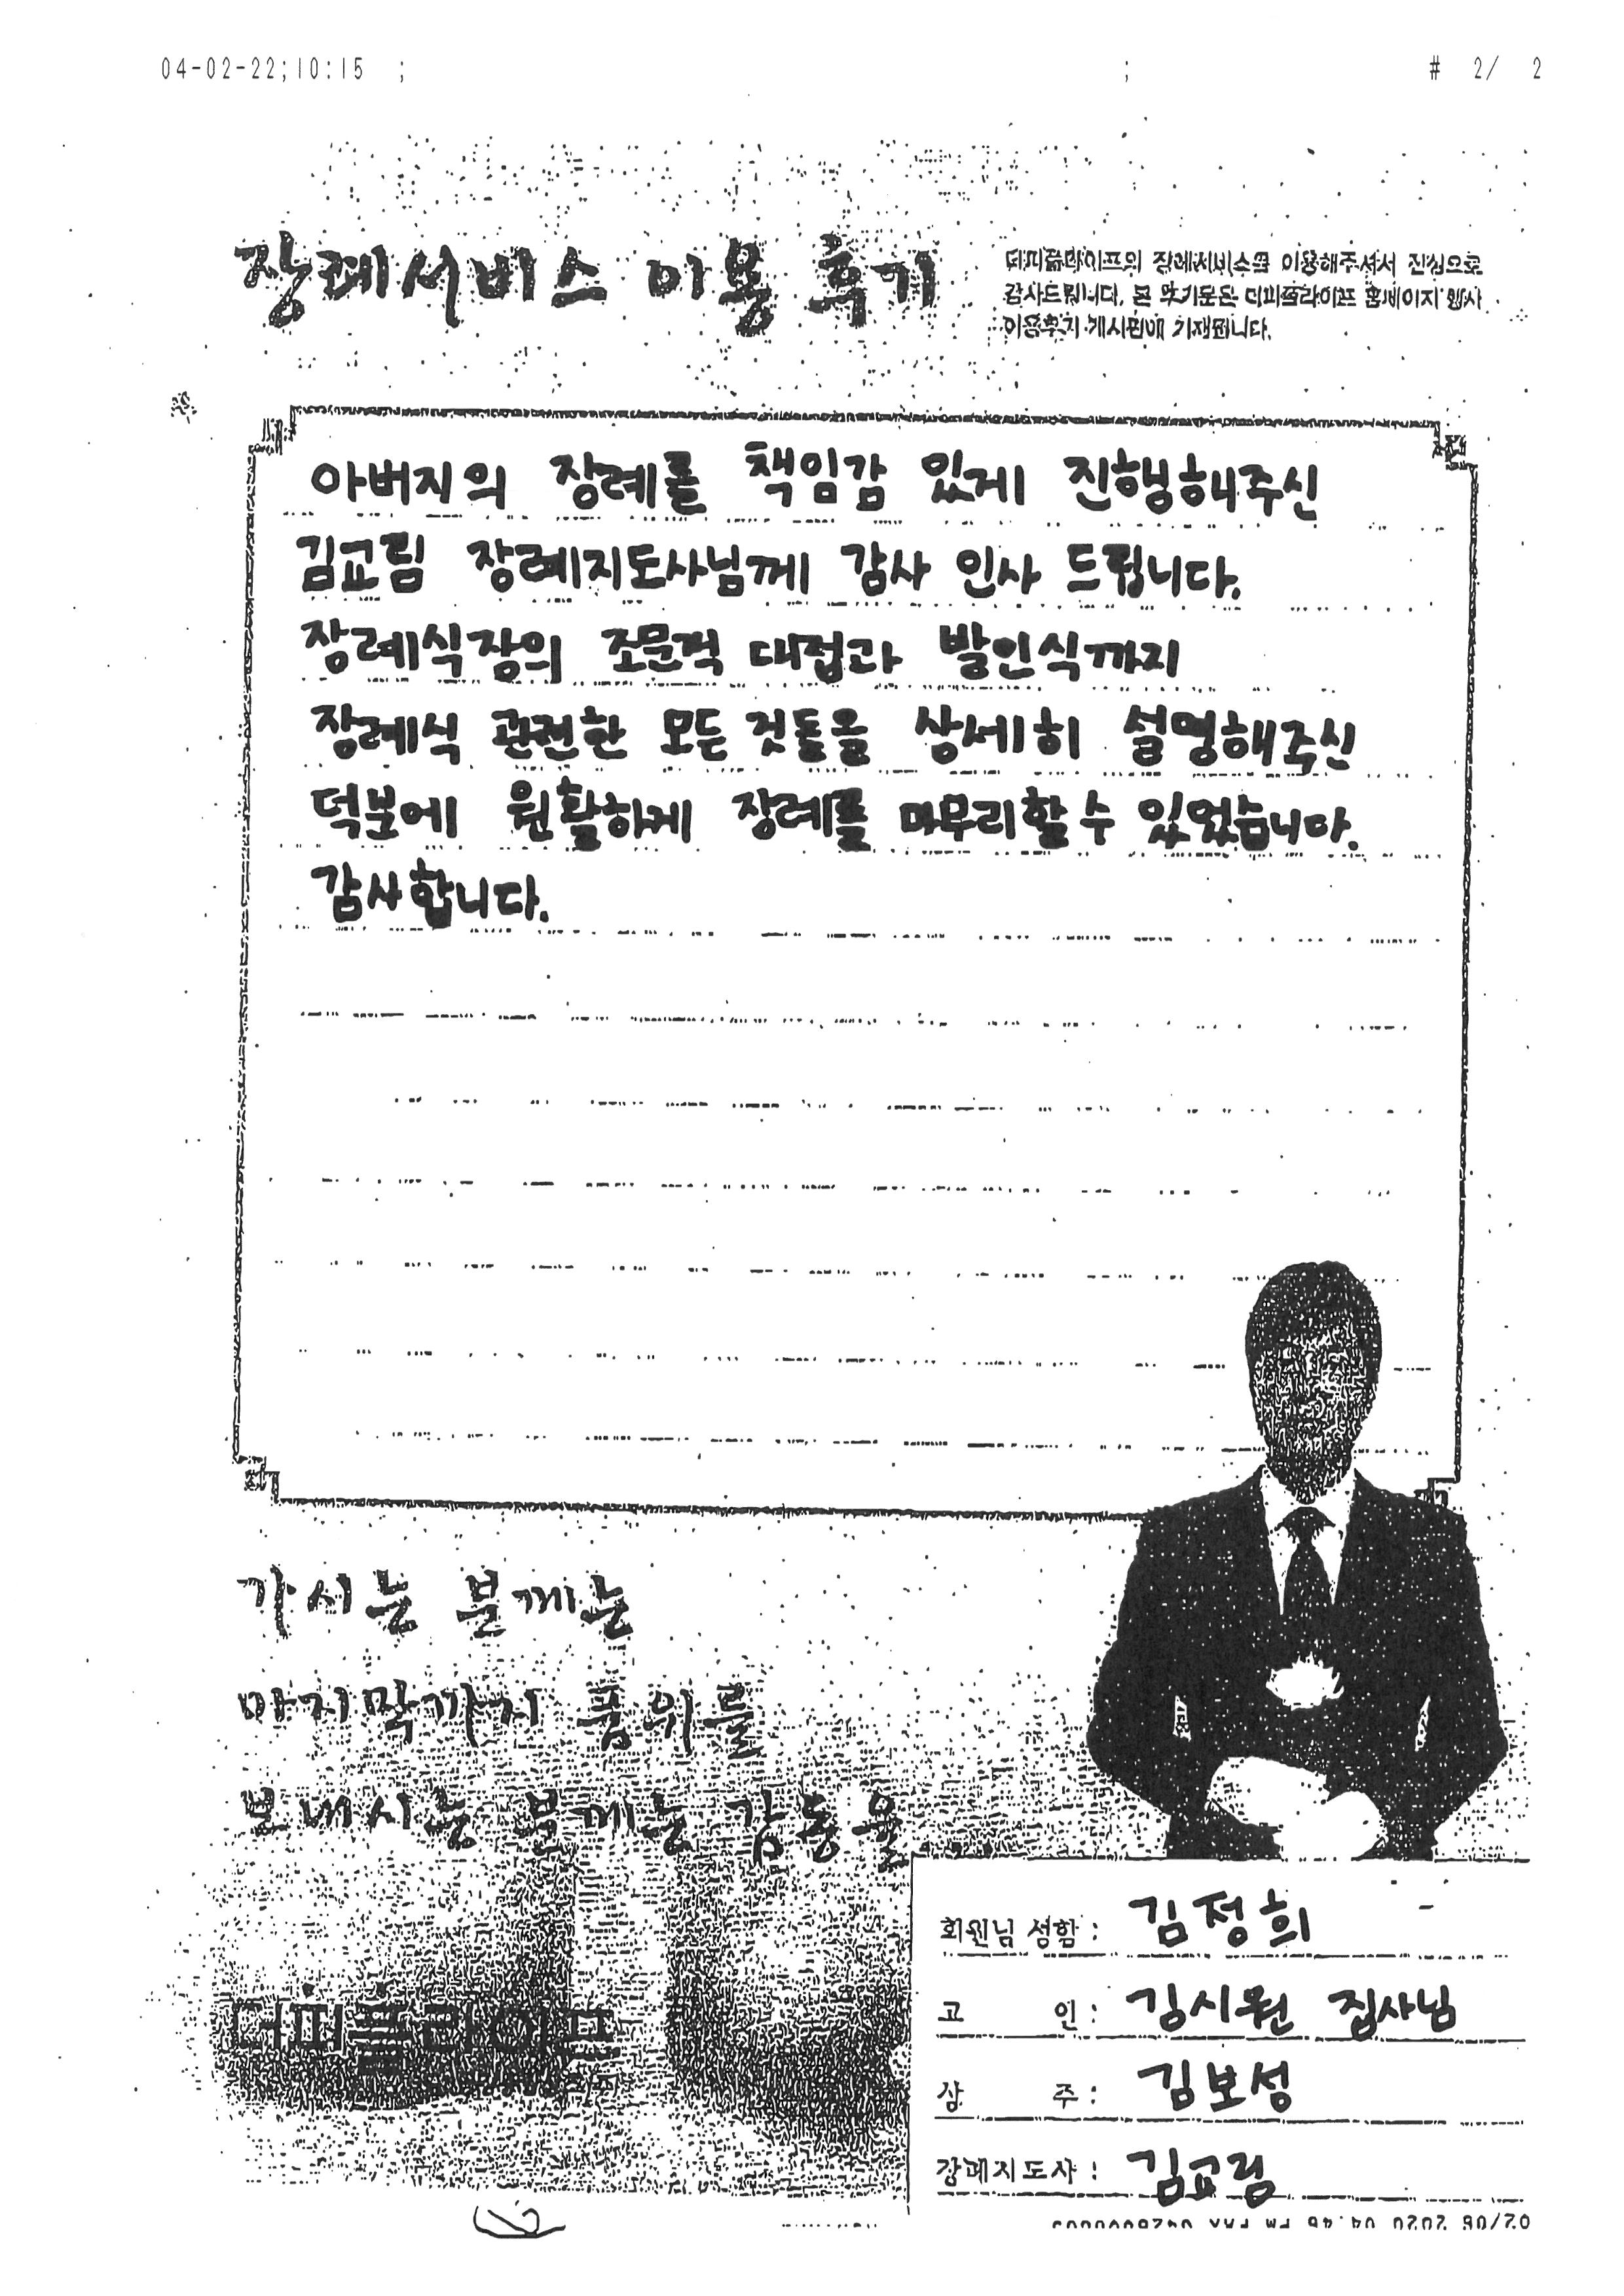 04-02-22;10:15 ; ; # 2/ 2
장례서비스 이용 후기
더피플라이프의 장례서비스를 이용해주셔서 진심으로
감사드립니다. 본 후기문은 더피플라이프 홈페이지 행사
이용후기 게시판에 기재됩니다.
아버지의 장례를 책임감 있게 진행해주신
김교림 장례지도사님께 감사 인사 드립니다.
장례식장의 조문객 대접과 발인식까지
장례식 관련한 모든 것들을 상세히 설명해주신
덕분에 원활하게 장례를 마무리할 수 있었습니다.
감사합니다.
가시는 분께는
마지막까지 품위를
보내시는 분께는 감동을
더피플라이프
회원님 성함 : 김정희
고 인 : 김시원 집사님
상 주 : 김보성
장례지도사 : 김교림
02/06 2020 04:46 PM FAX